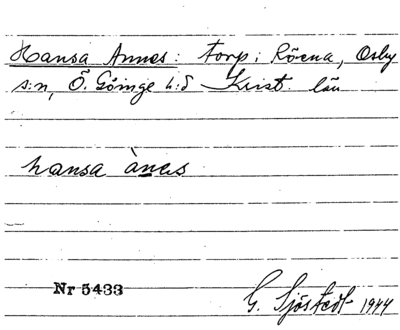 Hansa Annes: torp i Röena, Osby
s:n, Ö. Göinge h:d Krist. län
hansa ànes
Nr 5433
G. Sjöstedt 1944